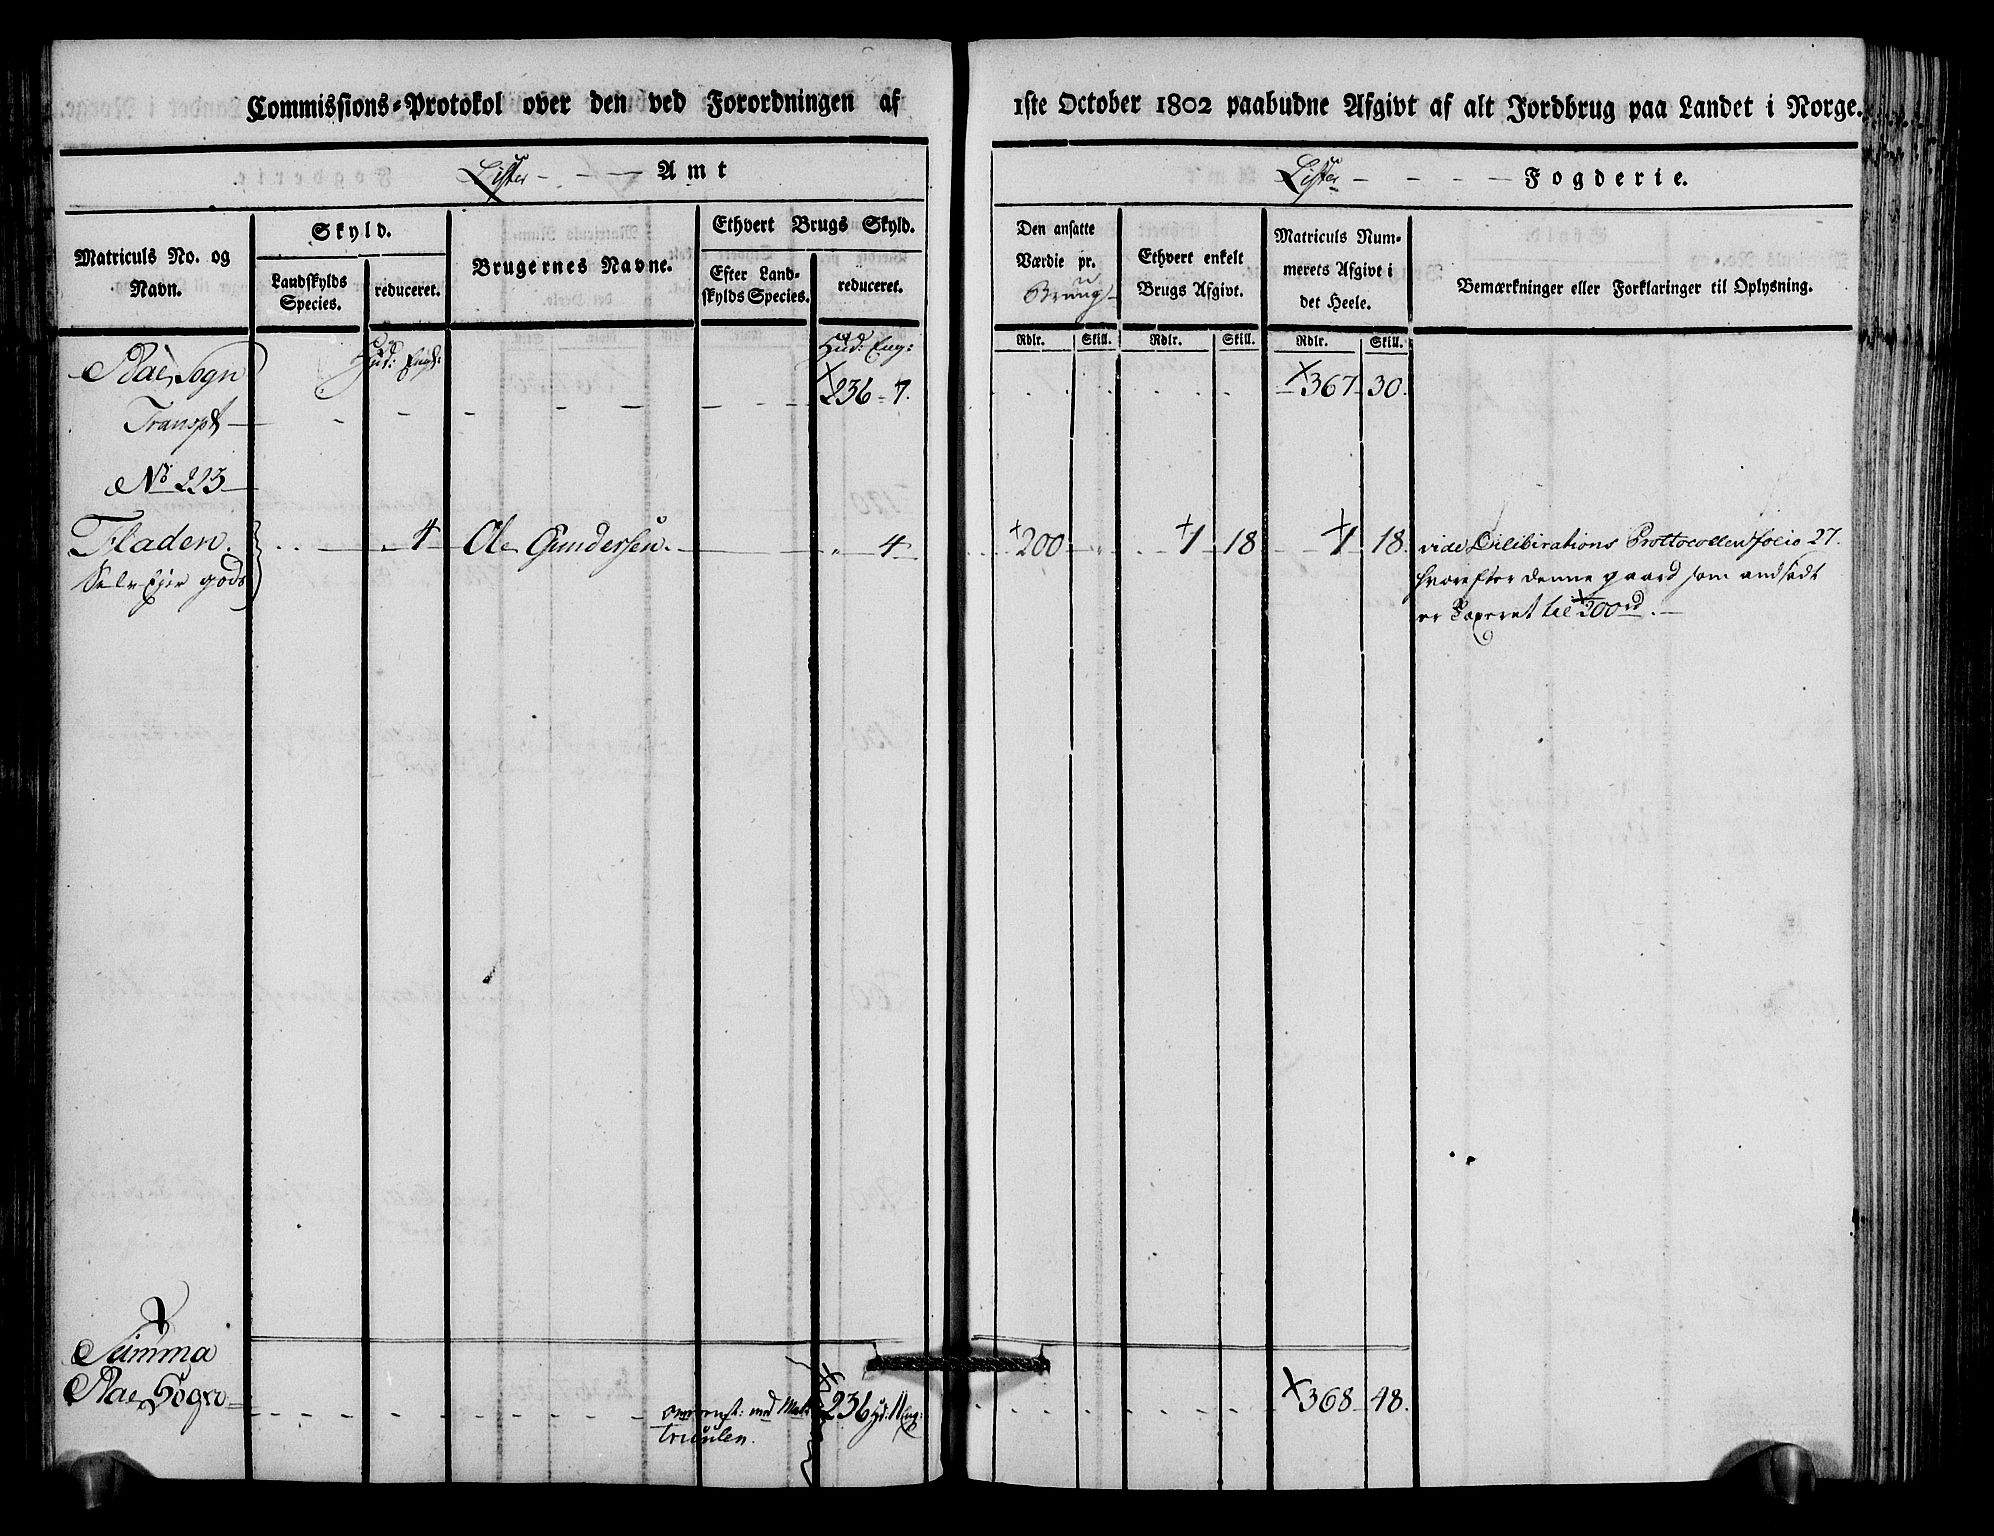 Commissions-Protokol over den ved Forordningen af 1ste October 1802 paabudne Afgivt af alt Jordbrug paa Landet i Norge.
Lister - - - Amt
Lister - - - - Fogderie.
Matriculs No. og Navn.
Skyld.
Landskylds Species.
reduceret.
Brugernes Navne.
Ethvert Brugs Skyld.
Efter Landskylds Species.
reduceret.
Den ansatte Værdie pr. Brug
Ethvert enkelt Brugs Afgivt.
Matriculs Nummerets Afgivt i det Heele.
Bemærkninger eller Forklaringer til Oplysning.
Rdlr. Skill. Rdlr. Skill. Rdlr. Skill.
Hud: Eng: Hud: Eng:
Sogn 236 - 7. 367 30.
Transpt
No 223
Fladen. 4 Ole Gundersen. 4 200 1 18 1 18. vide Dilibirations Prottocollen folio 27.
Selv Ejer gods hvorefter denne gaard som andsadt
er Taxeret til 200rd.
Summa
Sogn 236 hd: 11 Eng: 368 48.
overenst: med Ma-
triculen.